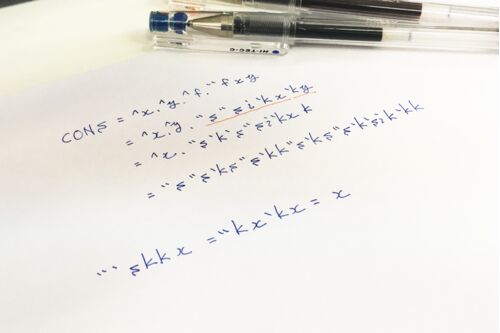 HI-TEC-C
CONS = ^x.^y.^f.``fxy
= ^x.^y.``s``si`kx`ky
= ^x.``s`k`s``si`kx k
= ``s``s`ks``s`kk``s`ks``s`k`si`kk`kk
```skkx = ``kx`kx = x